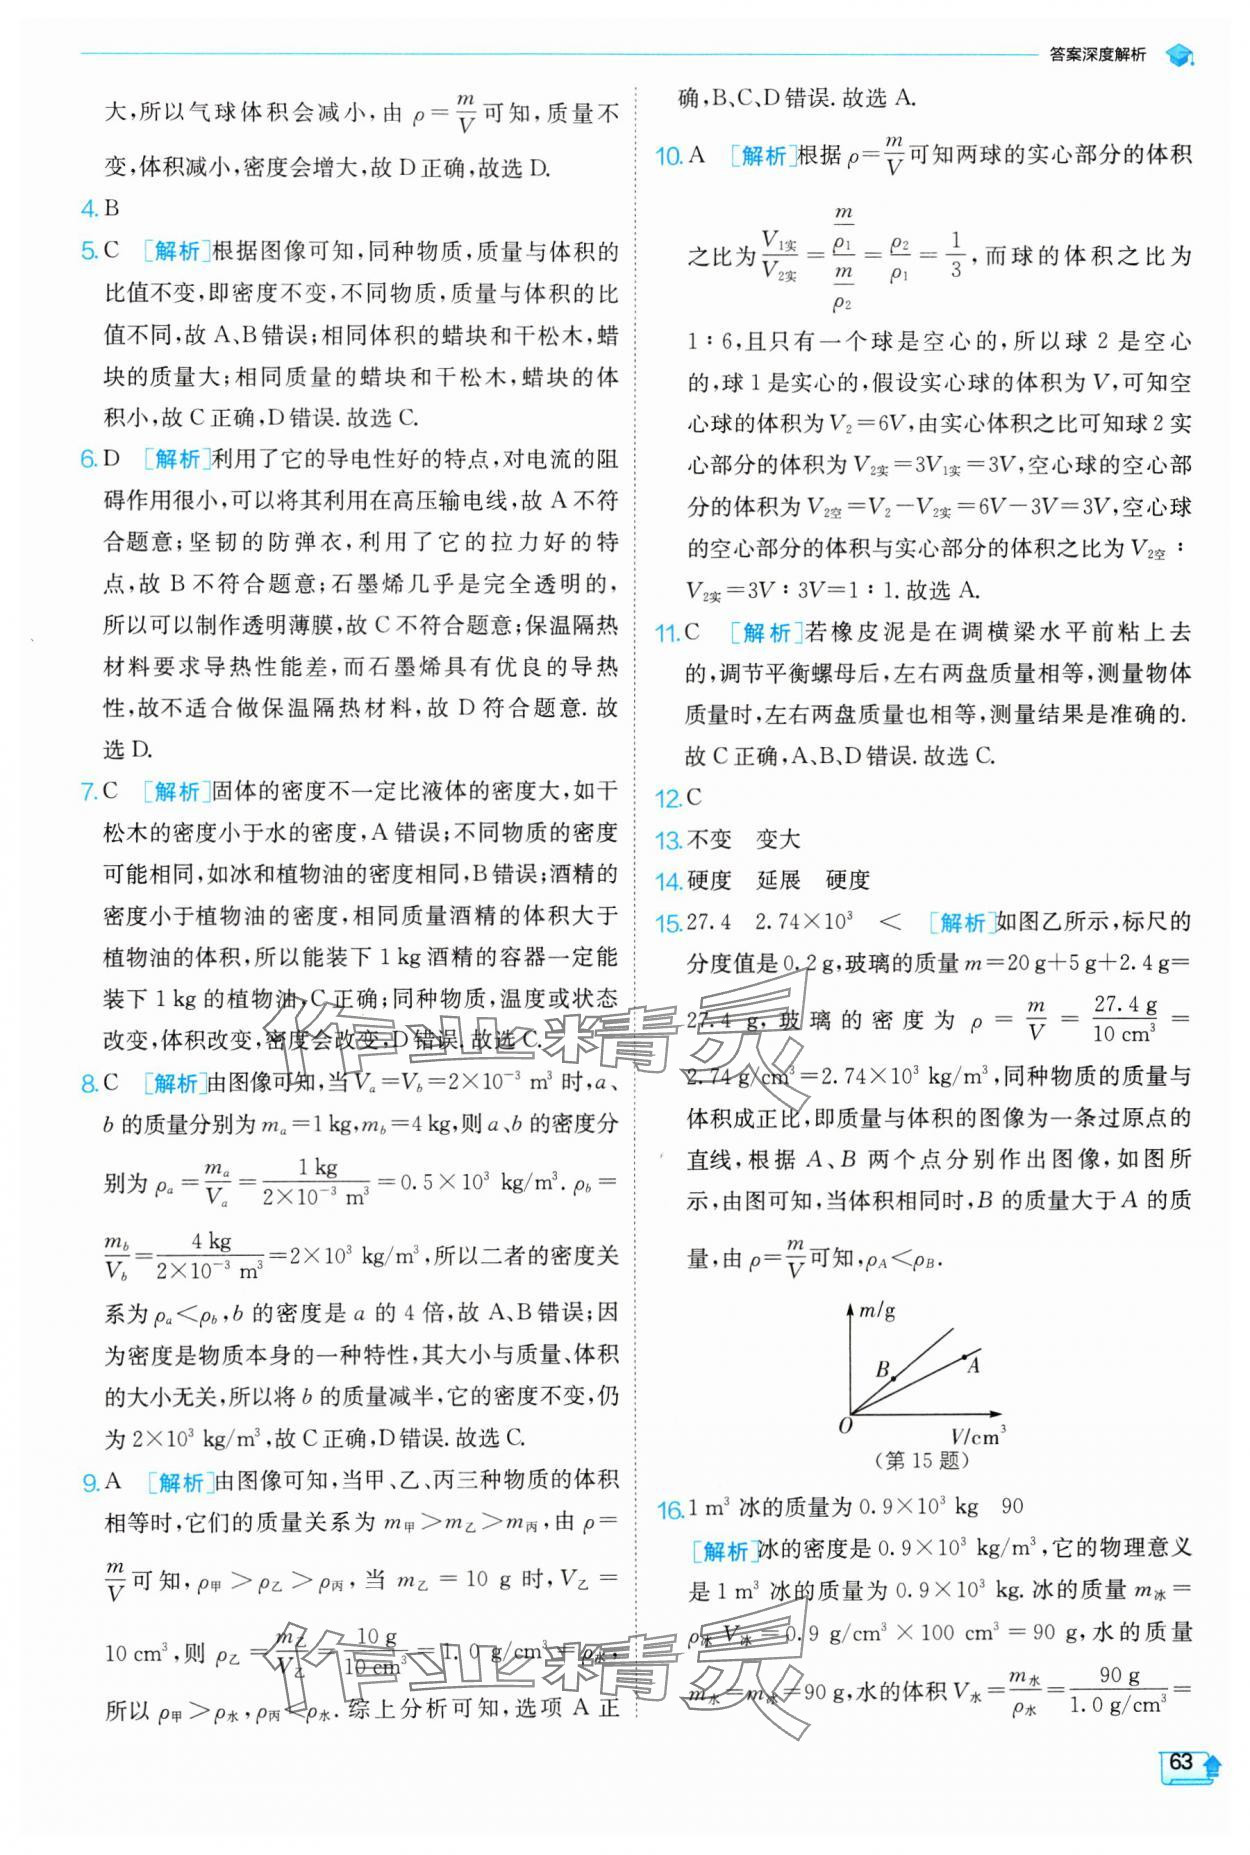 答案深度解析
大,所以气球体积会减小,由 ρ=m/V 可知,质量不
变,体积减小,密度会增大,故 D 正确,故选 D.
4. B
5. C [解析]根据图像可知,同种物质,质量与体积的
比值不变,即密度不变,不同物质,质量与体积的比
值不同,故 A、B 错误;相同体积的蜡块和干松木,蜡
块的质量大;相同质量的蜡块和干松木,蜡块的体
积小,故 C 正确,D 错误.故选 C.
6. D [解析]利用了它的导电性好的特点,对电流的阻
碍作用很小,可以将其利用在高压输电线,故 A 不符
合题意;坚韧的防弹衣,利用了它的拉力好的特
点,故 B 不符合题意;石墨烯几乎是完全透明的,
所以可以制作透明薄膜,故 C 不符合题意;保温隔热
材料要求导热性能差,而石墨烯具有优良的导热
性,故不适合做保温隔热材料,故 D 符合题意.故
选 D.
7. C [解析]固体的密度不一定比液体的密度大,如干
松木的密度小于水的密度,A 错误;不同物质的密度
可能相同,如冰和植物油的密度相同,B 错误;酒精的
密度小于植物油的密度,相同质量酒精的体积大于
植物油的体积,所以能装下 1 kg 酒精的容器一定能
装下 1 kg 的植物油,C 正确;同种物质,温度或状态
改变,体积改变,密度会改变,D 错误.故选 C.
8. C [解析]由图像可知,当 Va=Vb=2×10⁻³ m³ 时,a、
b 的质量分别为 ma=1 kg,mb=4 kg,则 a、b 的密度分
别为 ρa=ma/Va=1 kg/2×10⁻³ m³=0.5×10³ kg/m³.ρb=
mb/Vb=4 kg/2×10⁻³ m³=2×10³ kg/m³,所以二者的密度关
系为 ρa<ρb,b 的密度是 a 的 4 倍,故 A、B 错误;因
为密度是物质本身的一种特性,其大小与质量、体积
的大小无关,所以将 b 的质量减半,它的密度不变,仍
为 2×10³ kg/m³,故 C 正确,D 错误.故选 C.
9. A [解析]由图像可知,当甲、乙、丙三种物质的体积
相等时,它们的质量关系为 m甲>m乙>m丙,由 ρ=
m/V 可知,ρ甲>ρ乙>ρ丙,当 m乙=10 g 时,V乙=
10 cm³,则 ρ乙=m乙/V乙=10 g/10 cm³=1.0 g/cm³=ρ水,
所以 ρ甲>ρ水,ρ丙<ρ水.综上分析可知,选项 A 正
确,B、C、D 错误.故选 A.
10. A [解析]根据 ρ=m/V 可知两球的实心部分的体积
之比为 V1实/V2实=(m/ρ1)/(m/ρ2)=ρ2/ρ1=1/3,而球的体积之比为
1∶6,且只有一个球是空心的,所以球 2 是空心
的,球 1 是实心的,假设实心球的体积为 V,可知空
心球的体积为 V2=6V,由实心体积之比可知球 2 实
心部分的体积为 V2实=3V1实=3V,空心球的空心部
分的体积为 V2空=V2-V2实=6V-3V=3V,空心球
的空心部分的体积与实心部分的体积之比为 V2空∶
V2实=3V∶3V=1∶1.故选 A.
11. C [解析]若橡皮泥是在调横梁水平前粘上去
的,调节平衡螺母后,左右两盘质量相等,测量物体
质量时,左右两盘质量也相等,测量结果是准确的.
故 C 正确,A、B、D 错误.故选 C.
12. C
13. 不变 变大
14. 硬度 延展 硬度
15. 27.4 2.74×10³ < [解析]如图乙所示,标尺的
分度值是 0.2 g,玻璃的质量 m=20 g+5 g+2.4 g=
27.4 g,玻璃的密度为 ρ=m/V=27.4 g/10 cm³=
2.74 g/cm³=2.74×10³ kg/m³,同种物质的质量与
体积成正比,即质量与体积的图像为一条过原点的
直线,根据 A、B 两个点分别作出图像,如图所
示,由图可知,当体积相同时,B 的质量大于 A 的质
量,由 ρ=m/V 可知,ρA<ρB.
m/g
B
A
O
V/cm³
(第 15 题)
16. 1 m³ 冰的质量为 0.9×10³ kg 90
[解析]冰的密度是 0.9×10³ kg/m³,它的物理意义
是 1 m³ 冰的质量为 0.9×10³ kg.冰的质量 m冰=
ρ冰V冰=0.9 g/cm³×100 cm³=90 g,水的质量
m水=m冰=90 g,水的体积 V水=m水/ρ水=90 g/1.0 g/cm³=
63
作业精灵
作业精灵